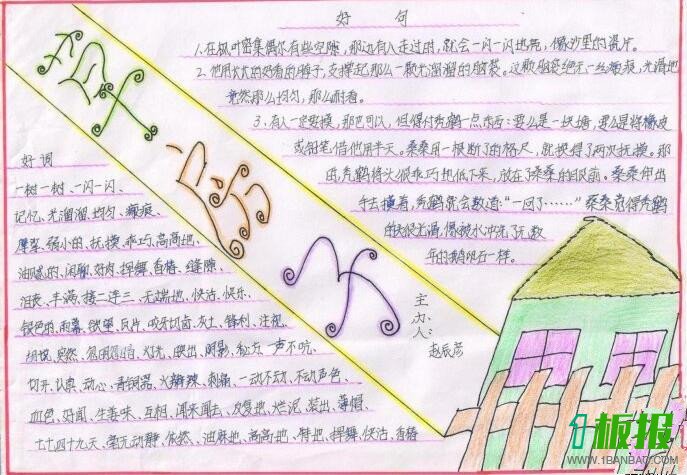 好 句
1.在枫叶密集偶尔有些空隙，那边有人走过时，就会一闪一闪地亮，像沙里的瓷片。
2.他用长长的好看的脖子，支撑起那么一颗光溜溜的脑袋。这颗脑袋绝无一丝瘢痕，光滑地
竟然那么均匀，那么耐看。
3.有人一定要摸，那也可以，但得付秃鹤一点东西：要么是一块糖，要么是将橡皮
或铅笔借他用半天。桑桑用一根断了的格尺，就换得了两次抚摸。那
时，秃鹤将头很乖巧地低下来，放在了桑桑的眼前。桑桑伸出
手去摸着，秃鹤就会数道：“一回了……”桑桑觉得秃鹤
的头很光滑，像被水冲洗了无数
年的鹅卵石一样。
好 词
一树一树、一闪一闪、
记忆、光溜溜、均匀、瘢痕、
弱小的、抚摸、乖巧、高高地、
油腻的、闲聊、好肉、挥舞、香椿、缝隙、
丰满、接二连三、无端地、快活、快乐、
银色的、雨幕、欲望、瓦片、咬牙切齿、灰土、锋利、注视、
突然、灯光、阴影、一声不吭、
切开、认真、动心、青铜器、火辣辣、刺痛、一动不动、不动声色、
血色、好闻、生姜味、互相、闻来闻去、反复地、烂泥、薄帽、
七七四十九天、毫无动静、依然、油麻地、高高地、特地、挥舞、快活、香椿
草
房
子
主
办
人：
赵辰彦
板报
WWW.1BANBAO.COM